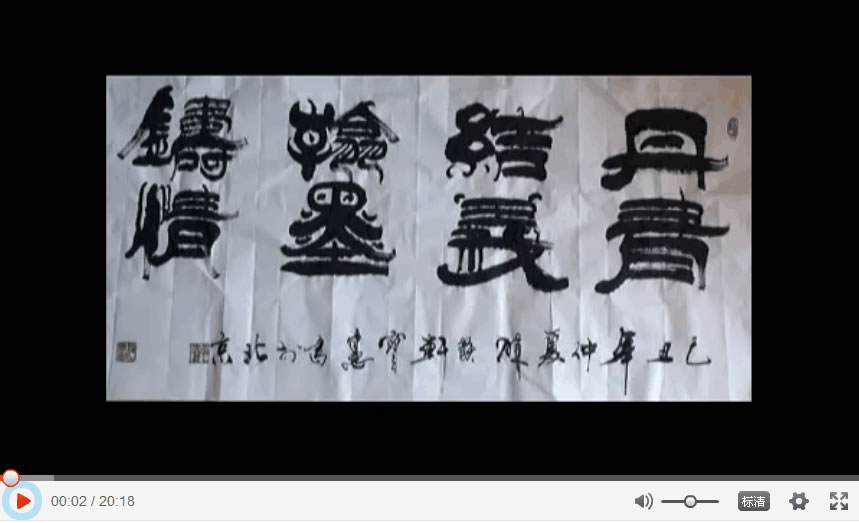 丹青
結義
翰墨
鑄情
己丑年仲夏 書於北京
00:02 / 20:18
标清